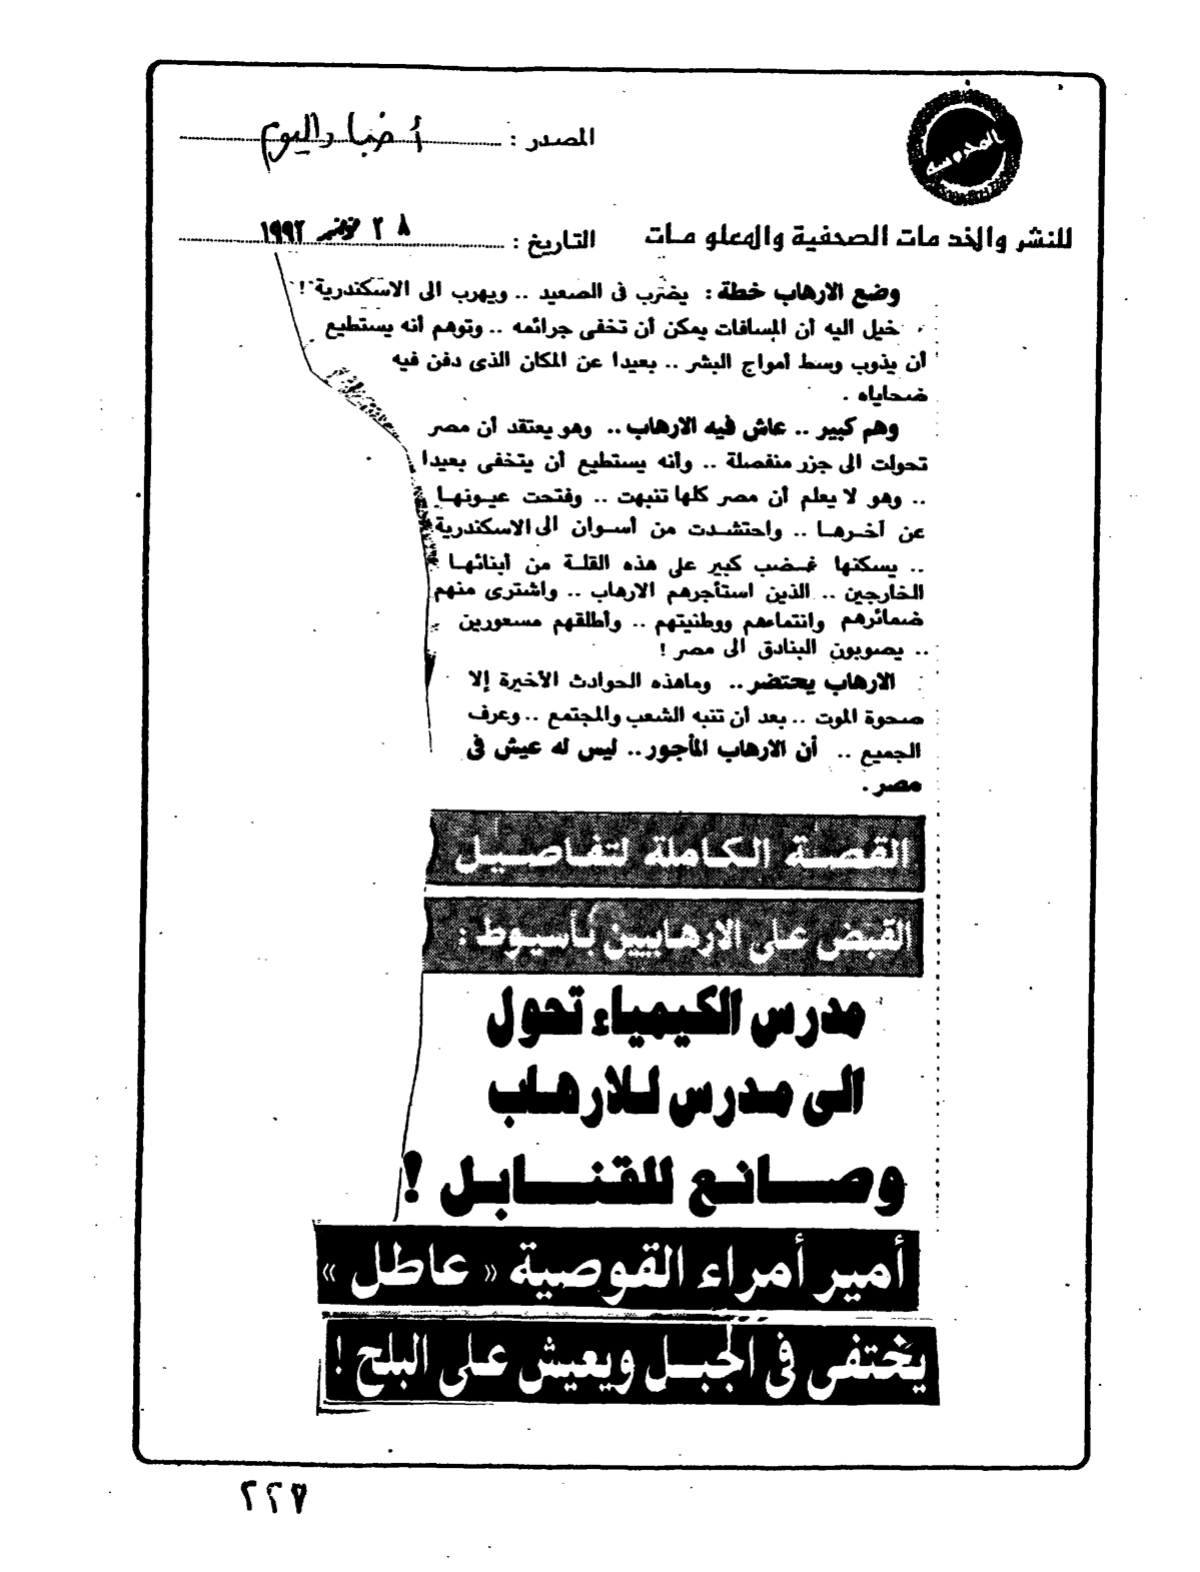 المحروسة
المصدر : أخبار اليوم
للنشر والخدمات الصحفية والمعلومات
التاريخ : ٢٨ نوفمبر ١٩٩٢
وضع الارهاب خطة : يضرب فى الصعيد .. ويهرب الى الاسكندرية !
خيل اليه أن المسافات يمكن أن تخفى جرائمه .. وتوهم أنه يستطيع
أن يذوب وسط أمواج البشر .. بعيدا عن المكان الذى دفن فيه
ضحاياه .
وهم كبير .. عاش فيه الارهاب .. وهو يعتقد أن مصر
تحولت الى جزر منفصلة .. وأنه يستطيع أن يتخفى بعيدا
.. وهو لا يعلم أن مصر كلها تنبهت .. وفتحت عيونها
عن أخرها .. واحتشدت من أسوان الى الاسكندرية
.. يسكنها غضب كبير على هذه القلة من أبنائها
الخارجين .. الذين استأجرهم الارهاب .. واشترى منهم
ضمائرهم وانتماءهم ووطنيتهم .. وأطلقهم مسعورين
.. يصوبون البنادق الى مصر !
الارهاب يحتضر .. وماهذه الحوادث الأخيرة إلا
صحوة الموت .. بعد أن تنبه الشعب والمجتمع .. وعرف
الجميع .. أن الارهاب المأجور .. ليس له عيش فى
مصر .
القصة الكاملة لتفاصيل
القبض على الارهابيين بأسيوط :
مدرس الكيمياء تحول
الى مدرس للارهاب
وصانع للقنابل !
أمير أمراء القوصية « عاطل »
يختفى فى الجبل ويعيش على البلح !
٢٢٧